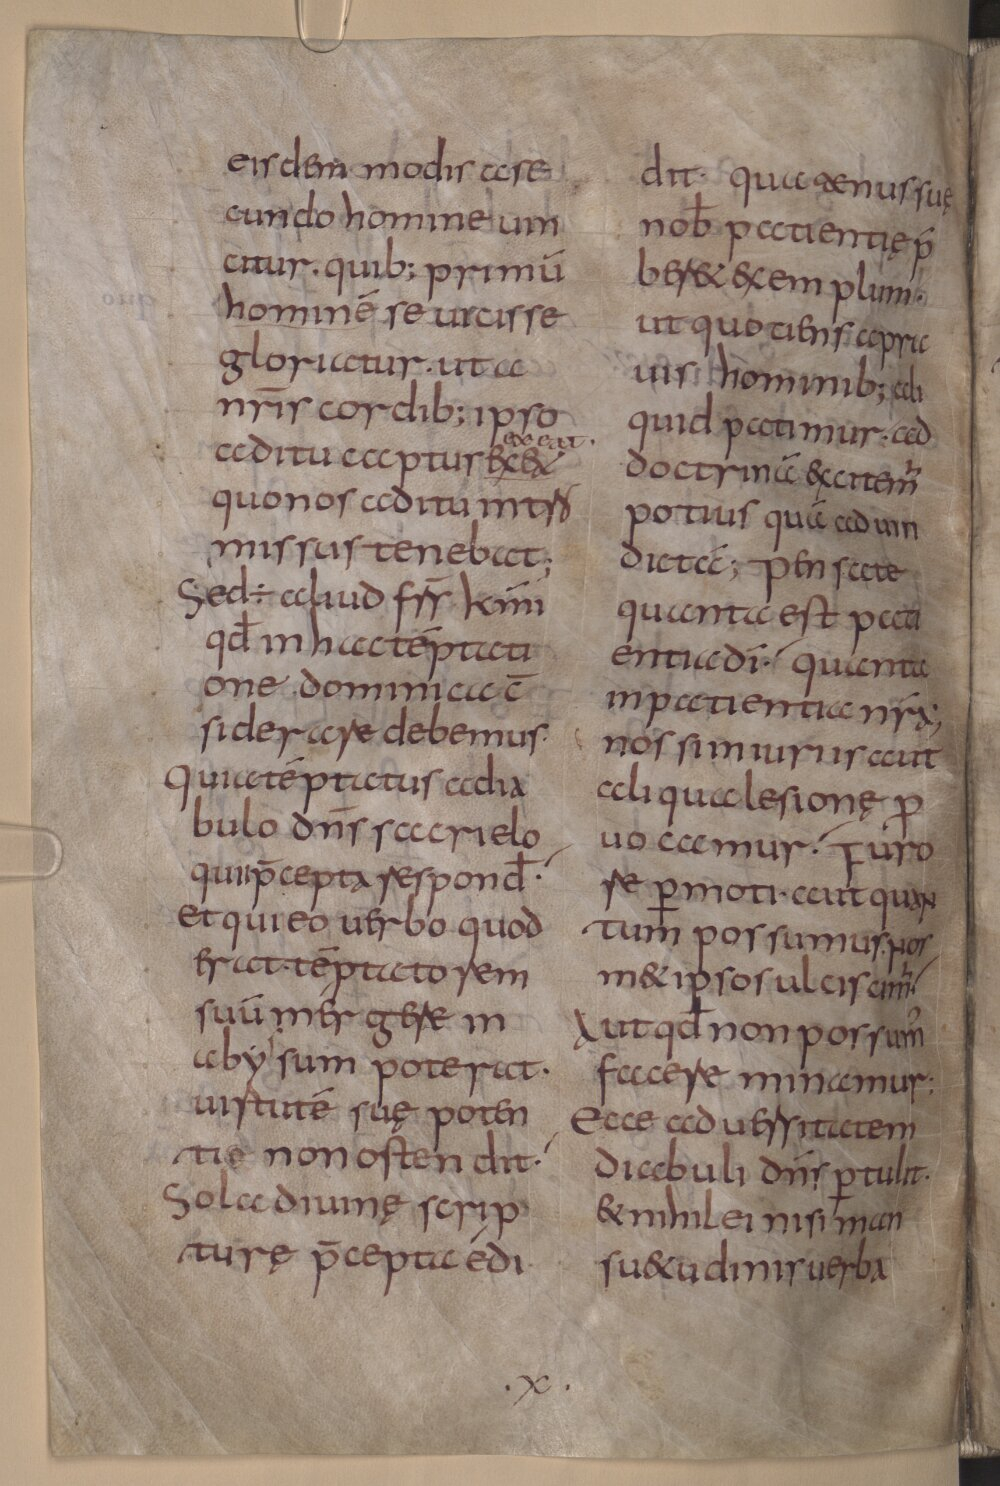 eisdem modis a se
cundo homine uin
citur. quib; primū
hominē se uicisse
gloriatur. ut a
nr̄is cordib; ipso
aditu captus exex̄
exeat.
quo nos aditu intro
missus tenebat;
Sed ÷ aliud frr̄ kr̄mi
qđ in hac tēptati
one dominica cō
siderare debemus.
Quia tēptatus a dia
bulo dn̄s sacri elo
quii p̄cepta respond̄.
et qui eo uerbo quod
erat. tēptatorem
suū mergere in
abyssum poterat.
uirtutē suę poten
tię non ostendit.
Sola diuinę scrip
turę p̄cepta edi
dit. quatenus suę
nob̄ patientię p̄
beret & exemplum.
ut quotiens a pra
uis hominib; ali
quid patimur. ad
doctrinā excitem̄
potius quā ad uin
dictā; Pensate
quanta est pati
entia dī. quanta
inpatientia nr̄a;
nos si iniuriis aut
aliqua lesionę ꝓ
uocamur. Furo
re ꝑmoti. aut quan
tum possumus. nos
m& ipsos ulciscim̄.
Aut qđ non possum̄
facere minamur:
Ecce aduersitatem
diabuli dn̄s ꝑtulit.
& nihil ei nisi man
su&udinis uerba
.x.